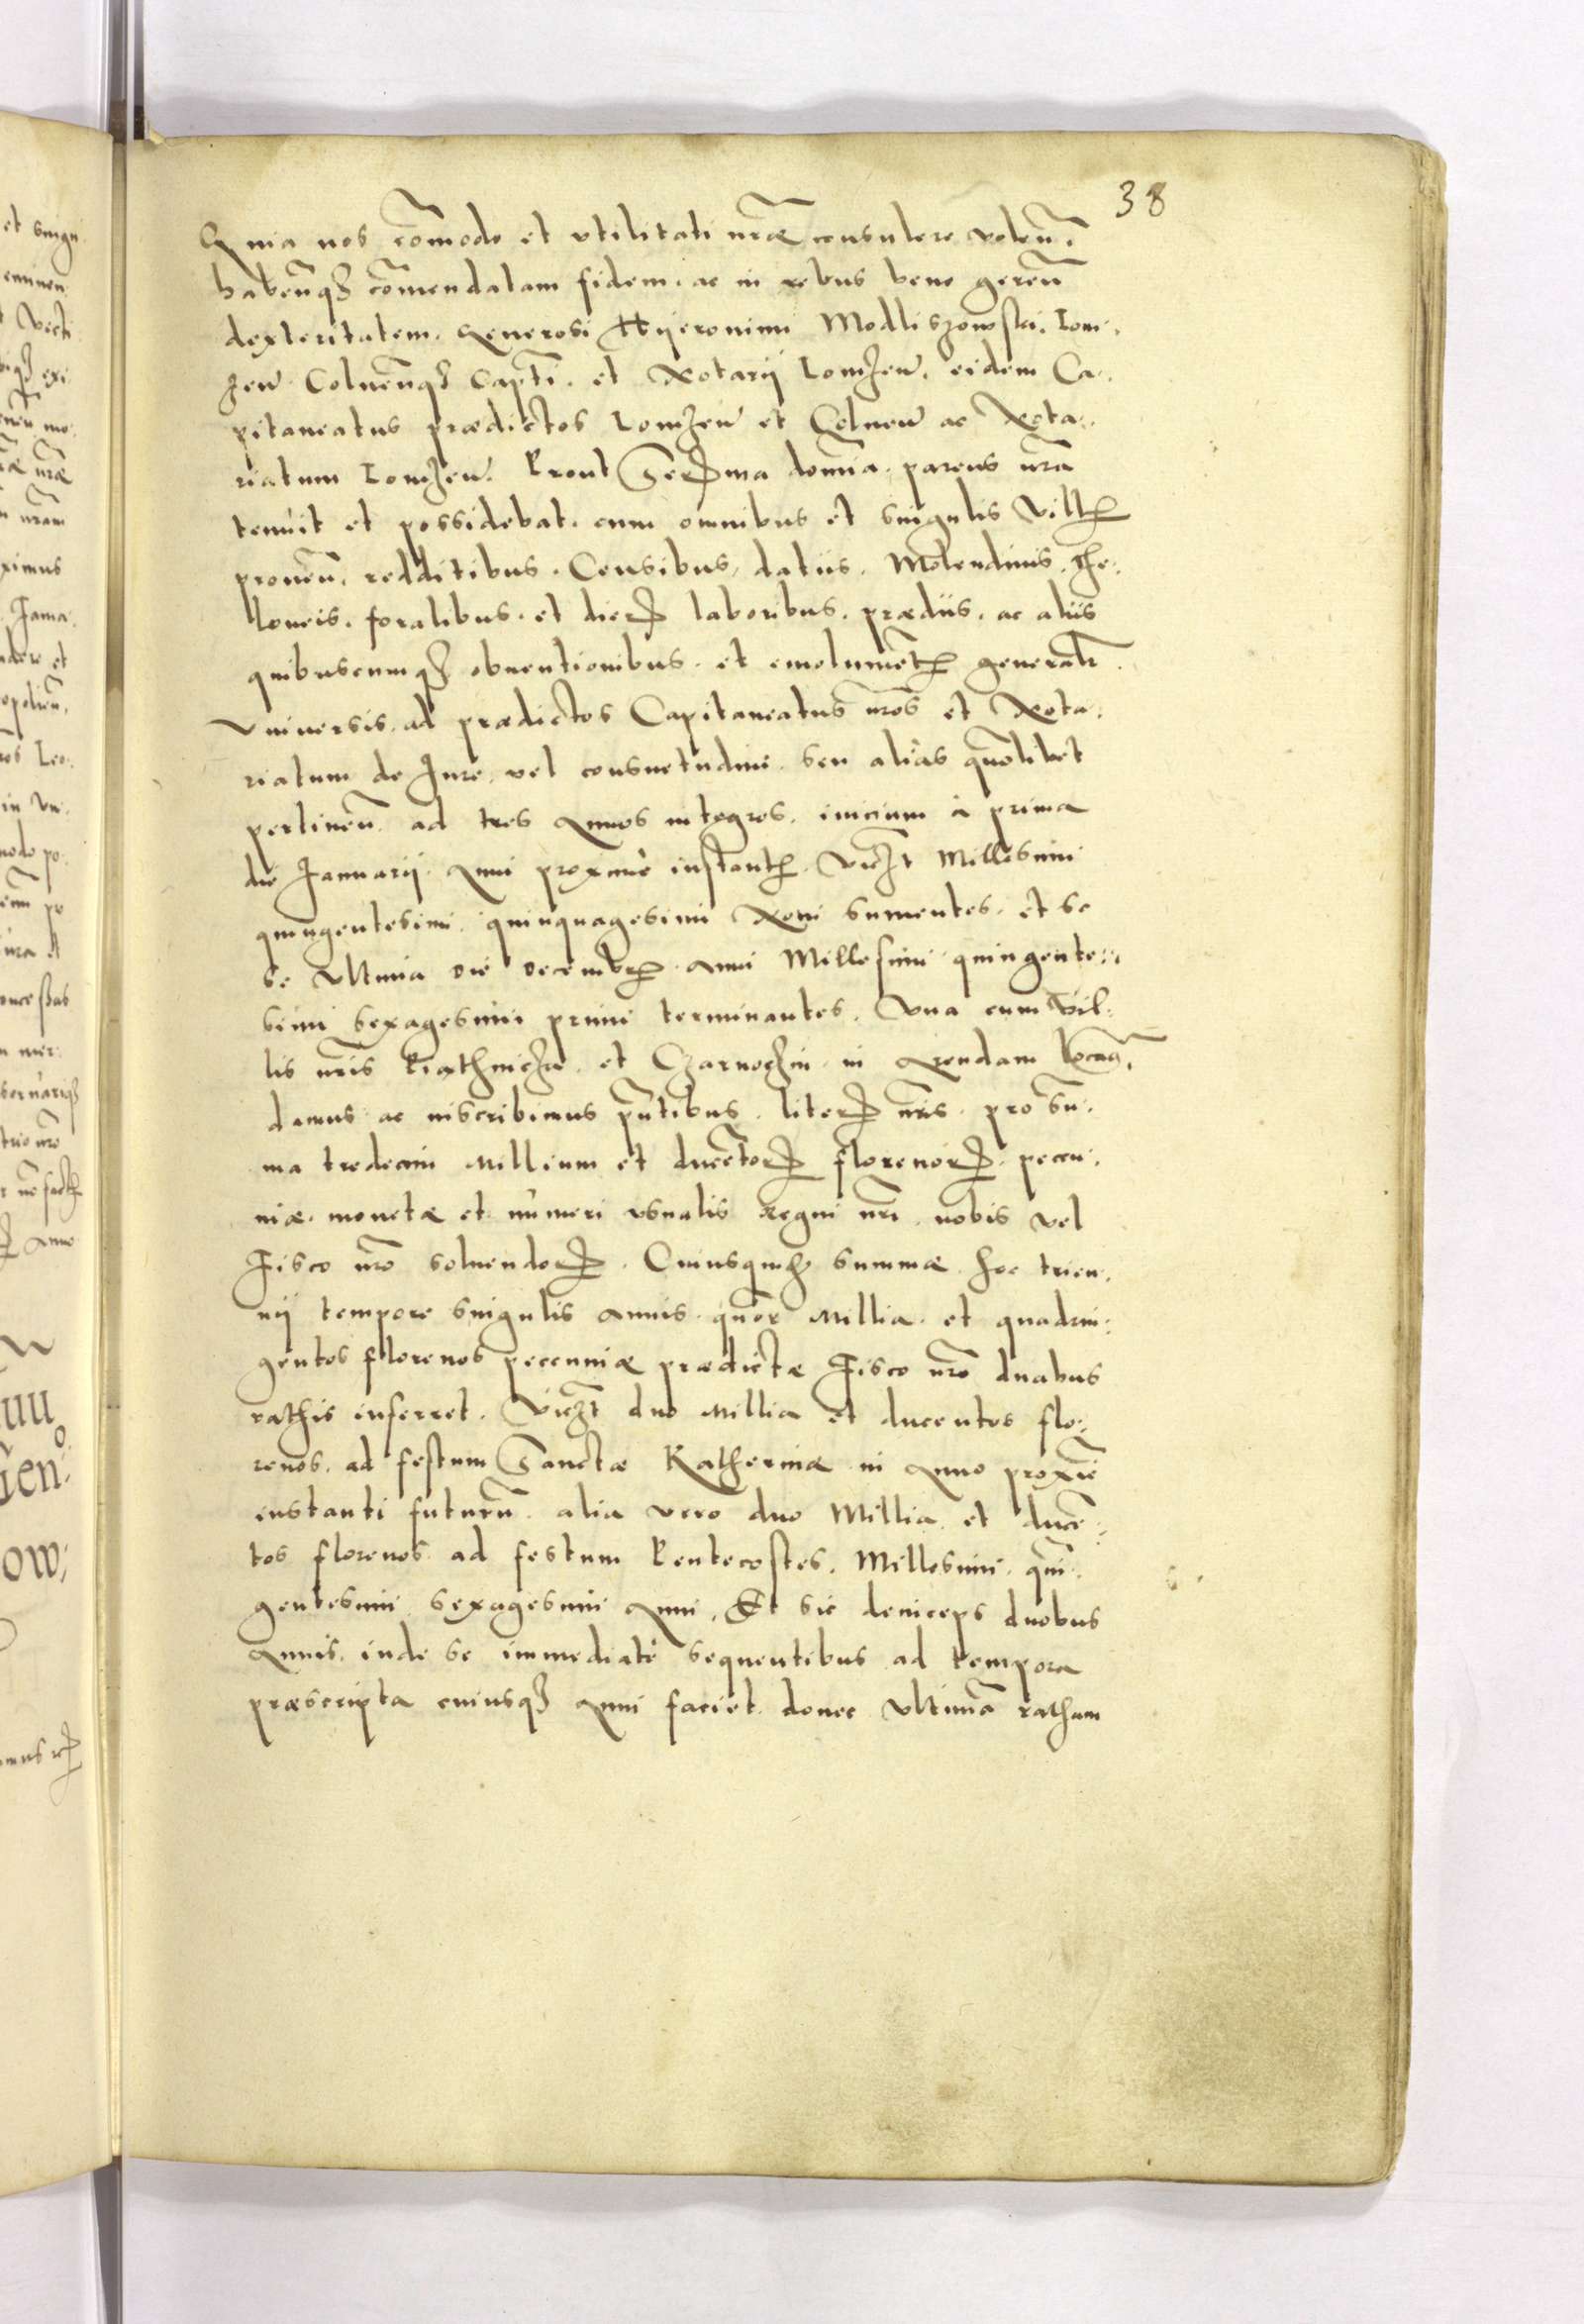 38
Quia nos cōmodo et vtilitati nr̄æ consulere volen̄.
haben̄q₃ cōmendatam fidem. ac in rebus bene geren̄
dexteritatem. Generosi Hyeronimi Modliszowski. Lom:
zen̄ Colnen̄q₃ Capt̄i. et Notarij Lomzen̄. eidem Ca:
pitaneatus prædictos Lomzen̄ et Colnen̄ ac Nota:
riatum Lomzen̄. Prout Serꝰma domīa. parens nr̄a
tenuit et possidebat. cum omnibus et singulis Villꝭ
proven̄. redditibus. Censibus, datiis. Molendinis. The:
loneis. foralibus. et dierꝝ laboribus. prædiis. ac aliis
quibuscumq₃ obuentionibus. et emolumētꝭ generalr̄.
vniuersis. ad prædictos Capitaneatus nr̄os et Nota:
riatum de Jure. vel consuetudine. seu alias quōlibet
pertinen̄. ad tres Annos integros. inicium à prima
die Januarij. Anni proxime instantꝭ. Vicz̄t Millesimi
quingentesimi. quinquagesimi Noni sumentes. et se
se Vltima die Decembrꝭ. Anni Millesimi quingente:
simi sexagesimi primi terminantes. Vna cum Vil:
lis nr̄is Piathnicza. et Czarnoczin. in Arendam locan̄.
damus ac inscribimus pn̄tibus. literꝝ nr̄is. pro sū:
ma tredecim Millium et ducētorꝝ florenorꝝ. pecu:
niæ. monetæ et numeri vsualis Regni nr̄i. nobis vel
Fisco nr̄o soluendorꝝ. Cuiusquid₃ summæ. hoc trien:
nij tempore singulis annis. qūor Millia. et quadrin:
gentos florenos pecuniæ prædictæ Fisco nr̄o duabus
rathis inferret. Vicz̄t duo Millia et ducentos flo:
renos. ad festum Sanctæ Katherinæ in Anno proxīe
instanti futurū. alia vero duo Millia. et ducē:
tos florenos ad festum Pentecostes. Millesimi. quī:
gentesimi sexagesimi Anni. Et sic deinceps duobus
Annis. inde se immediatè sequentibus ad tempora
præscripta cuiusq₃ Anni faciet. donec Vltimā rathum